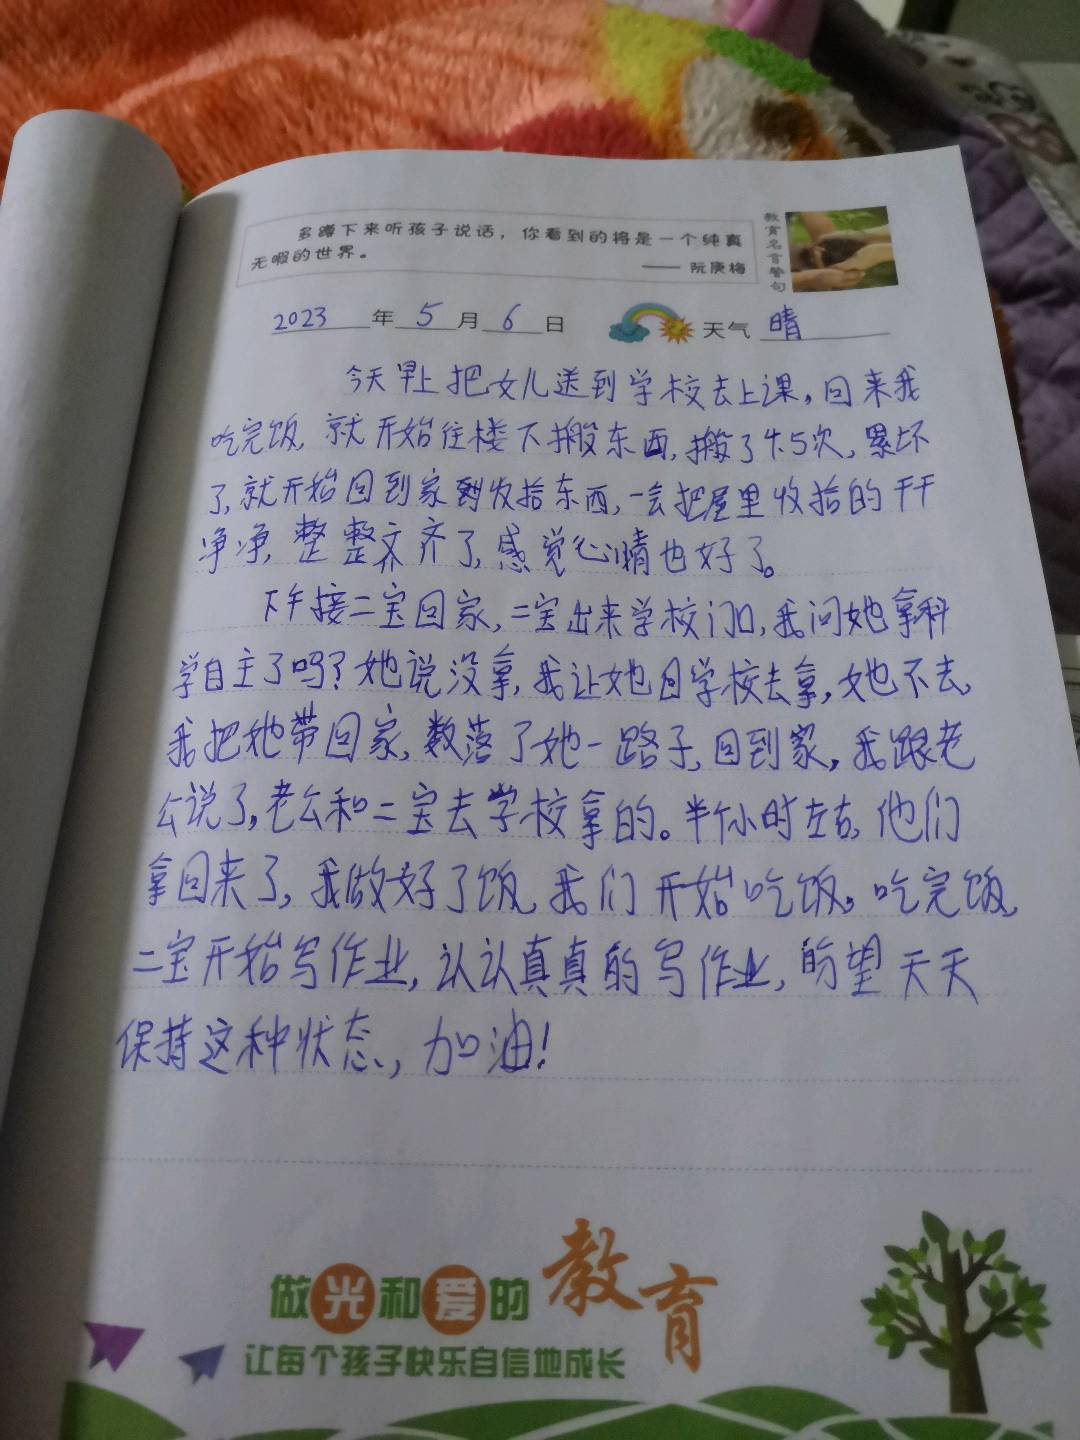 多蹲下来听孩子说话，你看到的将是一个纯真
无暇的世界。
—— 阮庚梅
教育名言警句
2023年5月6日 天气 晴
今天早上把女儿送到学校去上课，回来我
吃完饭，就开始往楼下搬东西，搬了4.5次，累坏
了，就开始回到家到收拾东西，一会把屋里收拾的干干
净净，整整齐齐了，感觉心情也好了。
下午接二宝回家，二宝出来学校门口，我问她拿科
学自主了吗？她说没拿，我让她回学校去拿，她不去，
我把她带回家，数落了她一路子，回到家，我跟老
公说了，老公和二宝去学校拿的。半个小时左右，他们
拿回来了，我做好了饭，我们开始吃饭。吃完饭，
二宝开始写作业，认认真真的写作业，盼望天天
保持这种状态，加油！
做光和爱的教育
让每个孩子快乐自信地成长